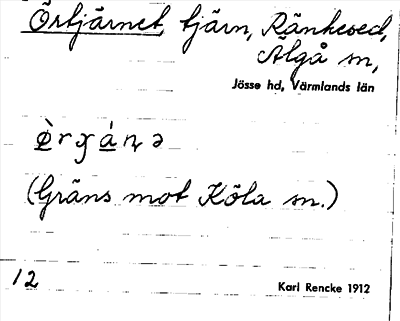 Örtjärnet, tjärn, Ränkesed,
Älgå sn,
Jösse hd, Värmlands län
(Gräns mot Köla sn.)
12
Karl Rencke 1912